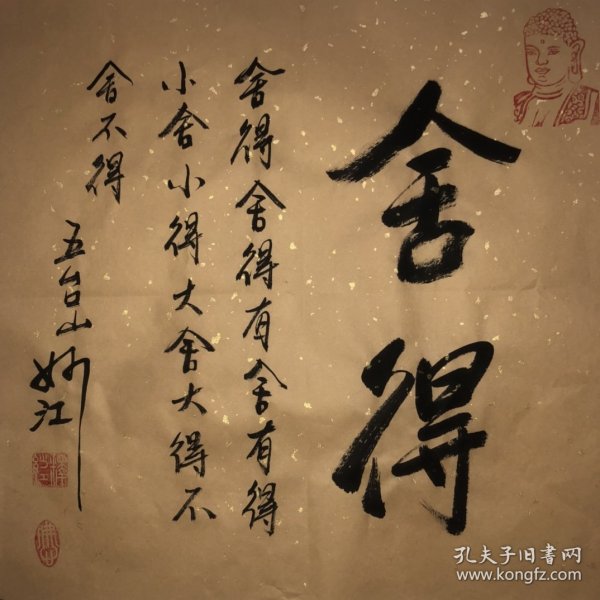 舍得
舍得舍得有舍有得
小舍小得大舍大得不
舍不得
五台山妙江
孔夫子旧书网
www.kongfz.com